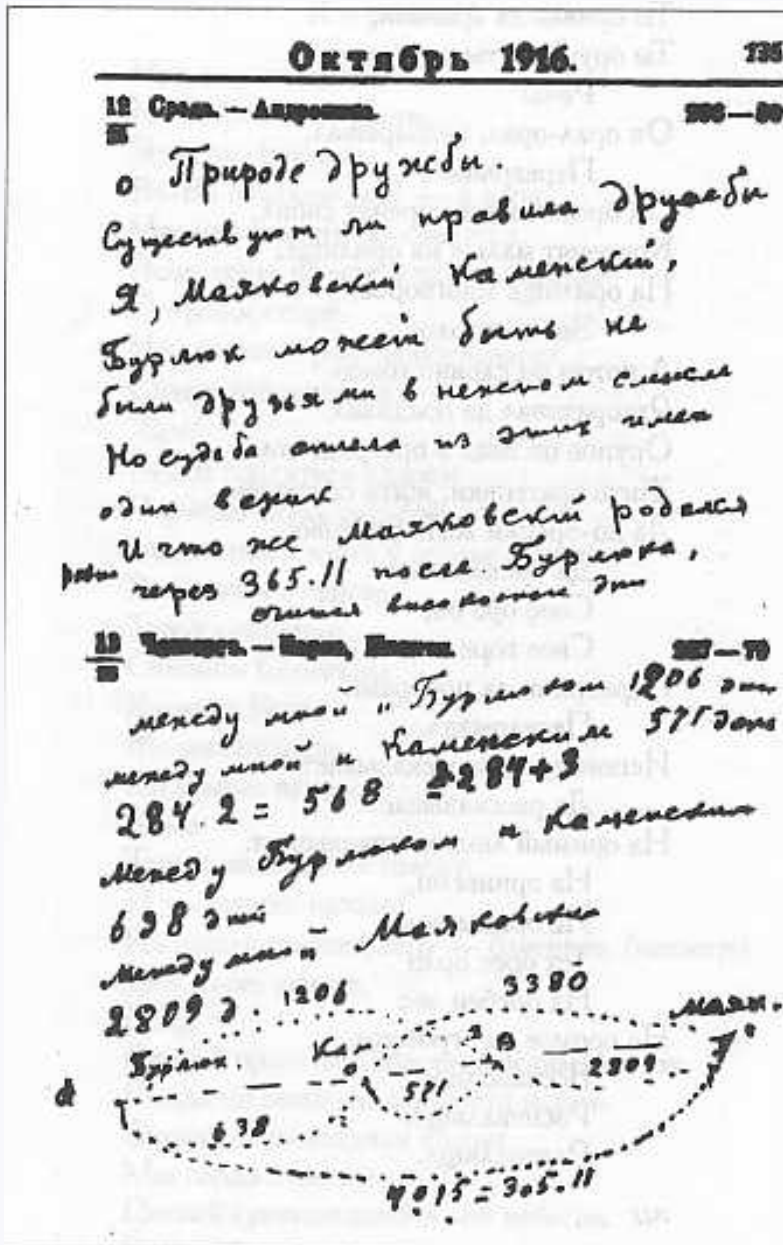 Октябрь 1916. 735
12 Среда. — Андроника.
О Природе дружбы.
Существуют ли правила дружбы
Я, Маяковскій Каменскій,
Бурлюк может быть не
были друзьями в нежном смысле
Но судьба сплела из этих имен
один веник
И что же Маяковскій родился
через 365.11 после Бурлюка,
считая високосные дни
13 Четвергъ. —
между мной и Бурлюком 1206 дней
между мной и Каменским 571 день
284.2 = 568 284+3
Между Бурлюком и Каменским
638 дней
Между мной Маяковским
2809 д. 1206 3380 маяк.
Бурлюк Кам. Я 2809
571
638
4015 = 365.11